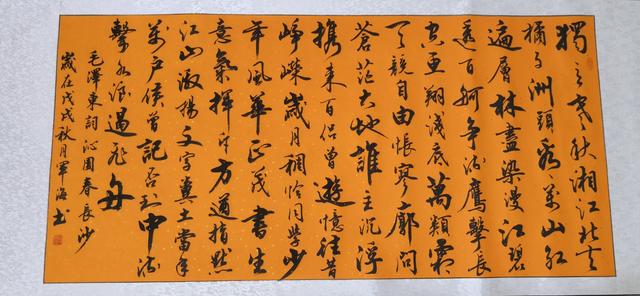 獨立寒秋湘江北去
橘子洲頭看萬山紅
遍層林盡染漫江碧
透百舸爭流鷹擊長
空魚翔淺底萬類霜
天競自由悵寥廓問
蒼茫大地誰主沉浮
携来百侣曾遊憶往昔
崢嶸歲月稠恰同學少
年風華正茂書生
意氣揮斥方遒指點
江山激揚文字糞土當年
萬户侯曾記否到中流
擊水浪遏飛舟
毛澤東詞沁園春長沙
歲在戊戌秋月軍海書